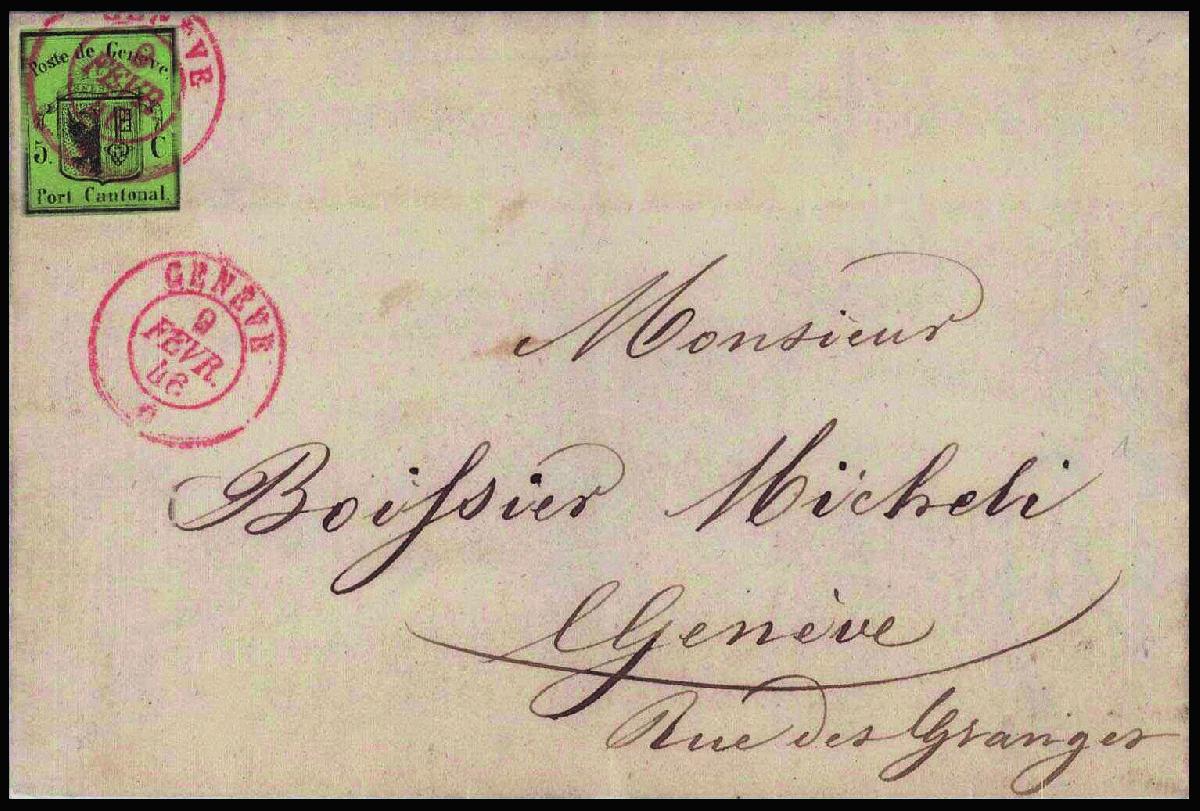 Poste de Genève
5. C
Port Cantonal.
GENÈVE
9
FEVR.
GENÈVE
9
FEVR.
46
Monsieur
Boissier Micheli
Genève
Rue des Granges